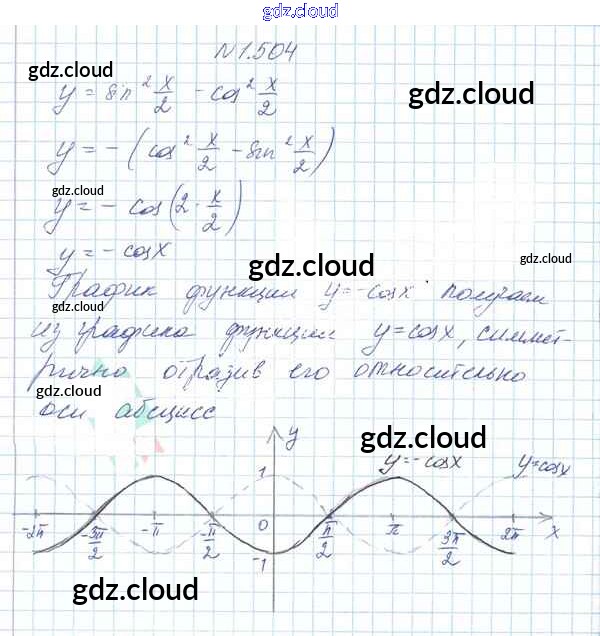 gdz.cloud
N1.504
gdz.cloud
y = sin² x/2 - cos² x/2
gdz.cloud
y = - (cos² x/2 - sin² x/2)
gdz.cloud
y = - cos (2 · x/2)
y = - cosx
gdz.cloud
gdz.cloud
График функции y = -cosx получаем
gdz.cloud
из графика функции y = cosx, симмет-
рично отразив его относительно
gdz.cloud
оси абсцисс
gdz.cloud
y
y = -cosx
y = cosx
1
-2π -3π/2 -π -π/2 0 π/2 π 3π/2 2π x
-1
gdz.cloud
gdz.cloud